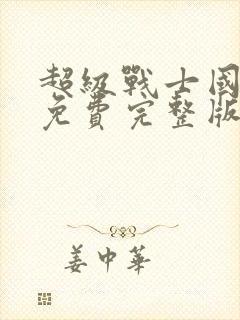 超級戰士國
免費完整版
姜中華